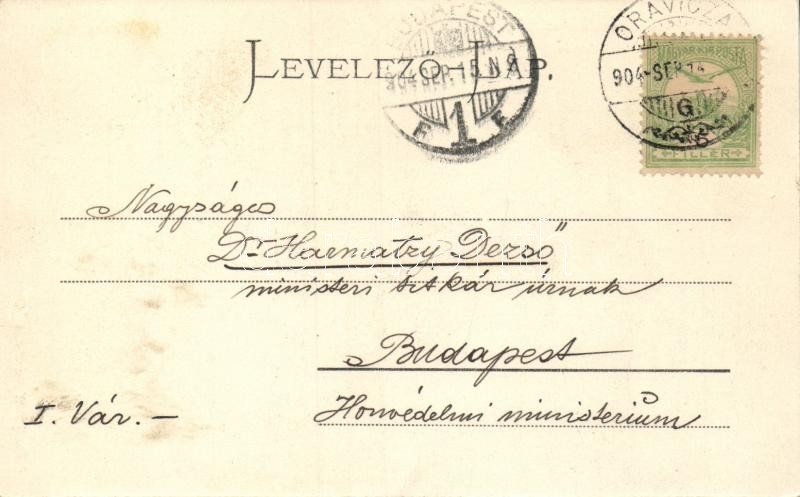 LEVELEZŐ-LAP.
BUDAPEST
904 SEP. 15. N 9
1
ORAVICZA
904-SEP
G
MAGYAR KIR. POSTA
FILLÉR
Nagyságos
Dr. Harmatzy Dezső
ministeri titkár úrnak
Budapest
I. Vár.—
Honvédelmi ministerium